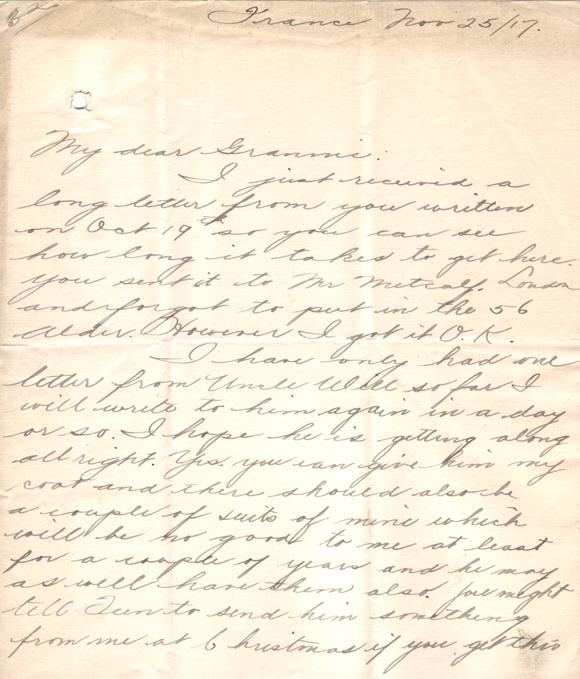 France Nov 25/17.
My dear Granmi.
I just received a
long letter from you written
on Oct 19th so you can see
how long it takes to get here.
you sent it to Mr Metcalf. London
and forgot to put in the 56
Alder. However I got it O.K.
I have only had one
letter from Uncle Will so far I
will write to him again in a day
or so. I hope he is getting along
allright. Yes. you can give him my
coat and there should also be
a couple of suits of mine which
will be no good to me at least
for a couple of years and he may
as well have them also. you might
tell to send him something
from me at Christmas if you get this